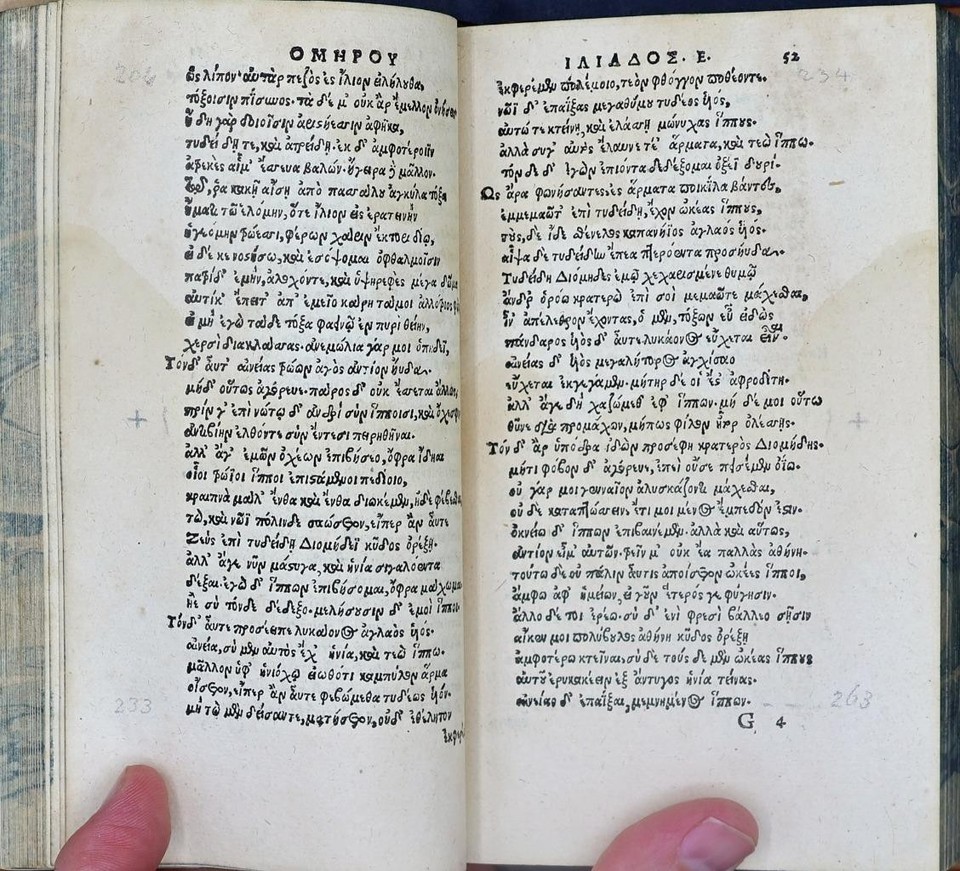 204
ΟΜΗΡΟΥ
ὣς λίπον· αὐτὰρ πεζὸς ἐς ἴλιον εἰλήλουθα,
τόξοισιν πίσυνος· τὰ δέ μ' οὐκ ἄρ ἔμελλον ὀνήσειν
ἤδη γὰρ δοιοῖσιν ἀριστήεσσιν ἀφῆκα,
τυδείδῃ τε, καὶ ἀτρείδῃ· ἐκ δ' ἀμφοτέροιϊν
ἀτρεκὲς αἷμ' ἔσσευα βαλών· ἤγειρα δὲ μᾶλλον·
τῷ, ῥα κακῇ αἴσῃ ἀπὸ πασσάλου ἀγκύλα τόξα
ἤματι τῷ ἑλόμην, ὅτε ἴλιον εἰς ἐρατεινὴν
ἡγεόμην τρώεσσι, φέρων χάριν ἕκτορι δίῳ,
εἰ δέ κε νοστήσω, καὶ ἐσόψομαι ὀφθαλμοῖσιν
πατρίδ' ἐμὴν, ἄλοχόν τε, καὶ ὑψηρεφὲς μέγα δῶμα
αὐτίκ' ἔπειτ' ἀπ' ἐμεῖο κάρη τάμοι ἀλλότριος φὼς
εἰ μὴ ἐγὼ τάδε τόξα φαεινῷ ἐν πυρὶ θείην,
χερσὶ διακλάσσας· ἀνεμώλια γάρ μοι ὀπηδεῖ,
Τὸν δ' αὖτ' αἰνείας τρώων ἀγὸς ἀντίον ηὔδα·
μὴ δ' οὕτως ἀγόρευε· πάρος δ' οὐκ ἔσσεται ἄλλως,
πρίν γ' ἐπὶ νώτῳ δ' ἀνδρὶ σὺν ἵπποισι, καὶ ὄχεσφιν
ἀντιβίην ἐλθόντε σὺν ἔντεσι πειρηθῆναι.
ἀλλ' ἄγ' ἐμῶν ὀχέων ἐπιβήσεο, ὄφρα ἴδηαι
οἷοι τρώϊοι ἵπποι ἐπιστάμενοι πεδίοιο,
κραιπνὰ μάλ' ἔνθα καὶ ἔνθα διωκέμεν, ἠδὲ φέβεσθαι
τὼ, καὶ νῶϊ πόλινδε σαώσετον, εἴπερ ἂν αὖτε
Ζεὺς ἐπὶ τυδείδῃ Διομήδεϊ κῦδος ὀρέξῃ·
ἀλλ' ἄγε νῦν μάστιγα, καὶ ἡνία σιγαλόεντα
δέξαι· ἐγὼ δ' ἵππων ἐπιβήσομαι, ὄφρα μάχωμαι
ἠὲ σὺ τόνδε δέδεξο· μελήσουσιν δ' ἐμοὶ ἵπποι·
Τὸν δ' αὖτε προσέειπε λυκάονος ἀγλαὸς υἱός·
αἰνεία, σὺ μὲν αὐτὸς ἔχ' ἡνία, καὶ τεὼ ἵππω·
μᾶλλον ὑφ' ἡνιόχῳ εἰωθότι καμπύλον ἅρμα
οἴσετον, εἴπερ ἂν αὖτε φεβώμεθα τυδέως υἱόν·
μὴ τὼ μὲν δείσαντε, ματήσετον, οὐδ' ἐθέλητον
233
ἐκφερέ
ΙΛΙΑΔΟΣ. Ε.
52
234
ἐκφερέμεν πολέμοιο, τεὸν φθόγγον ποθέοντε·
νῶϊ δ' ἐπαΐξας μεγαθύμου τυδέος υἱός,
αὐτώ τε κτείνῃ, καὶ ἐλάσσῃ μώνυχας ἵππους·
ἀλλὰ σύγ' αὐτὸς ἔλαυνε τέ' ἅρματα, καὶ τεὼ ἵππω·
τὸν δὲ δ' ἐγὼν ἐπιόντα δεδέξομαι ὀξέϊ δουρί·
Ὣς ἄρα φωνήσαντες ἐς ἅρματα ποικίλα βάντες,
ἐμμεμαῶτ' ἐπὶ τυδείδῃ, ἔχον ὠκέας ἵππους,
τοὺς, δὲ ἴδε σθένελος καπανήϊος ἀγλαὸς υἱός·
αἶψα δὲ τυδείδην ἔπεα πτερόεντα προσηύδα·
Τυδείδη Διόμηδες ἐμῷ κεχαρισμένε θυμῷ
ἄνδρ' ὁρόω κρατερὼ ἐπὶ σοὶ μεμαῶτε μάχεσθαι,
ἶν' ἀπέλεθρον ἔχοντας, ὁ μὲν, τόξων εὖ εἰδὼς
πάνδαρος υἱὸς δ' αὖτε λυκάονος εὔχεται εἶναι·
αἰνείας δ' υἱὸς μεγαλήτορος ἀγχίσαο
εὔχεται ἐκγεγάμεν· μήτηρ δέ οἱ ἔστ' ἀφροδίτη·
ἀλλ' ἄγε δὴ χαζώμεθ' ἐφ' ἵππων· μὴ δέ μοι οὕτω
θῦνε διὰ προμάχων, μήπως φίλον ἦτορ ὀλέσσῃς·
Τὸν δ' ἂρ ὑπόδρα ἰδὼν προσέφη κρατερὸς Διομήδης·
μήτι φόβον δ' ἀγόρευε, ἐπεὶ οὐδέ σε πεισέμεν οἴω·
οὐ γάρ μοι γενναῖον ἀλυσκάζοντι μάχεσθαι,
οὐ δὲ καταπτώσσειν, ἔτι μοι μένος ἔμπεδόν ἐστιν·
ὀκνείω δ' ἵππων ἐπιβαινέμεν· ἀλλὰ καὶ αὔτως,
ἀντίον εἶμ' αὐτῶν· τρεῖν μ' οὐκ ἐᾷ παλλὰς ἀθήνη·
τούτω δὲ οὐ πάλιν αὖτις ἀποίσετον ὠκέες ἵπποι,
ἄμφω ἀφ' ἡμείων, εἰ γοῦν ἕτερός γε φύγῃσιν·
ἄλλο δέ τοι ἐρέω· σὺ δ' ἐνὶ φρεσὶ βάλλεο σῇσιν
αἴκεν μοι πολύβουλος ἀθήνη κῦδος ὀρέξῃ
ἀμφοτέρω κτεῖναι, σὺ δὲ τούς δε μὲν ὠκέας ἵππους
αὐτοῦ ἐρυκακέειν ἐξ ἄντυγος ἡνία τείνας·
αἰνείαο δ' ἐπαΐξαι, μεμνημένος ἵππων·
263
G 4